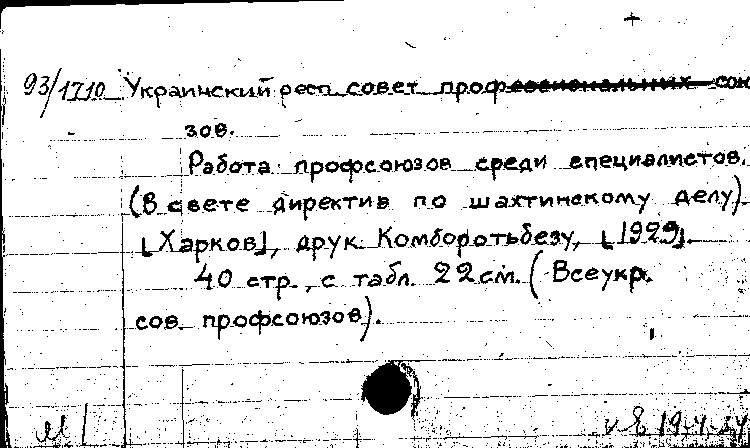 93/1710 Украинский респ. совет проф~~ессиональних~~ сою
зов.
Работа профсоюзов среди специалистов.
(В свете директив по шахтинскому делу).
[Харков], друк. Комборотьбезу, [1929].
40 стр., с табл. 22 см. (Всеукр.
сов. профсоюзов).